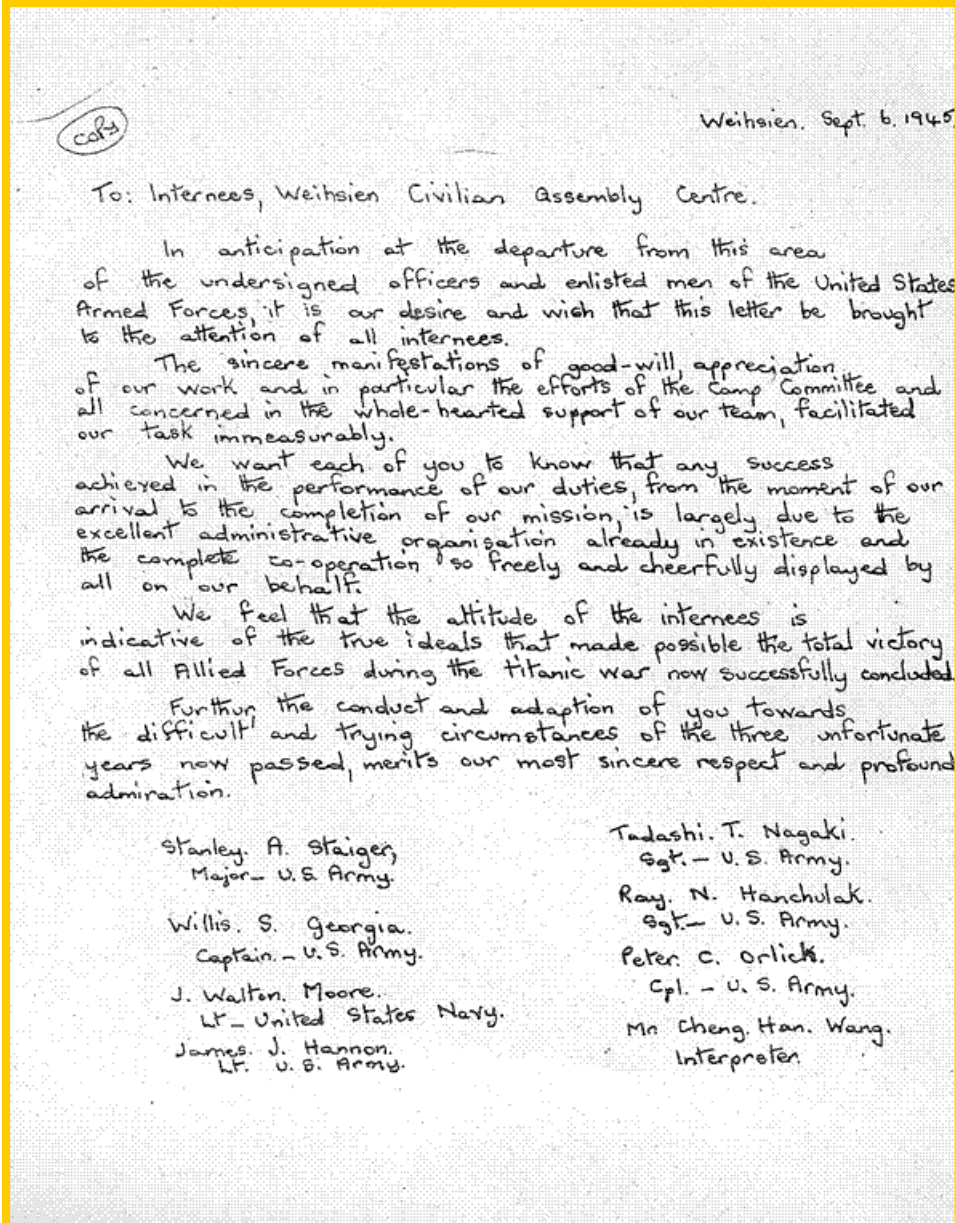 copy
Weihsien. Sept. 6. 1945.
To: Internees, Weihsien Civilian Assembly Centre.
In anticipation at the departure from this area
of the undersigned officers and enlisted men of the United States
Armed Forces, it is our desire and wish that this letter be brought
to the attention of all internees.
The sincere manifestations of good-will, appreciation,
of our work and in particular the efforts of the Camp Committee and
all concerned in the whole-hearted support of our team, facilitated
our task immeasurably.
We want each of you to know that any success
achieved in the performance of our duties, from the moment of our
arrival to the completion of our mission, is largely due to the
excellent administrative organisation already in existence and
the complete co-operation so freely and cheerfully displayed by
all on our behalf.
We feel that the attitude of the internees is
indicative of the true ideals that made possible the total victory
of all Allied Forces during the titanic war now successfully concluded.
Furthur, the conduct and adaption of you towards
the difficult and trying circumstances of the three unfortunate
years now passed, merits our most sincere respect and profound
admiration.
Stanley. A. Staiger,
Major - U.S. Army.
Willis. S. Georgia.
Captain. - U.S. Army.
J. Walton. Moore.
Lt - United States Navy.
James. J. Hannon.
Lt. U.S. Army.
Tadashi. T. Nagaki.
Sgt. - U.S. Army.
Ray. N. Hanchulak.
Sgt. - U.S. Army.
Peter. C. Orlick.
Cpl. - U.S. Army.
Mr. Cheng. Han. Wang.
Interpreter.